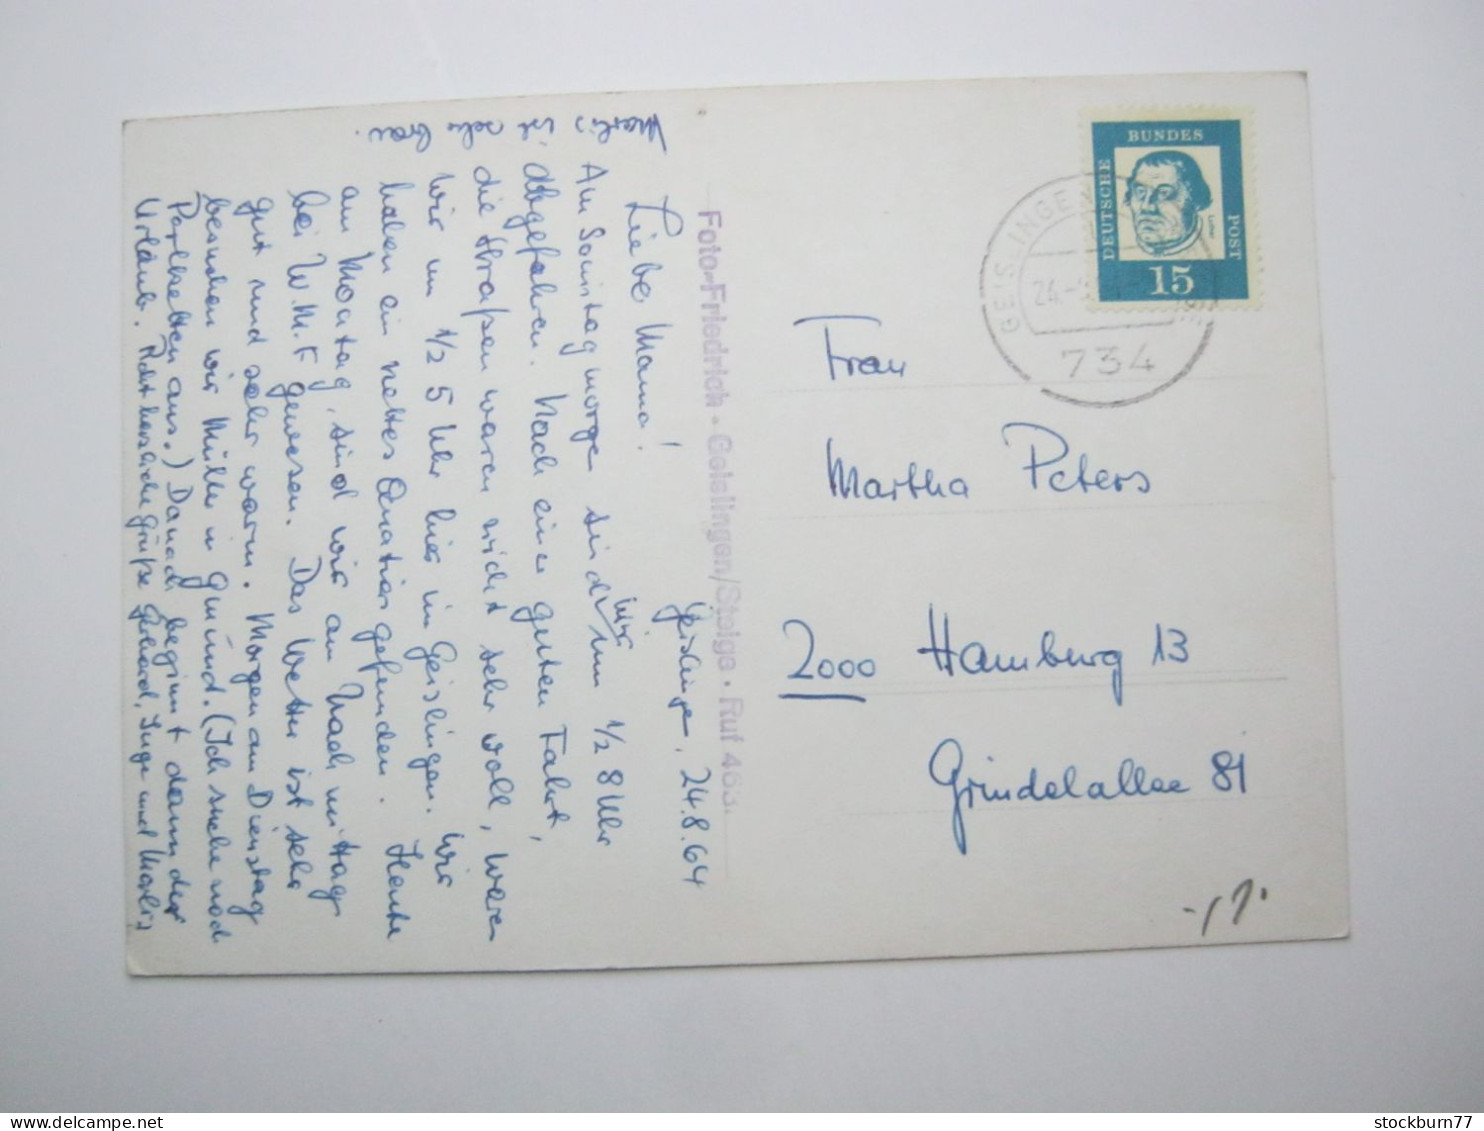 Geislingen, 24.8.64
Liebe Mama!
Am Sonntagmorge sind wir um 1/2 8 Uhr
abgefahren. Nach einer guten Fahrt,
die Straßen waren nicht sehr voll, waren
wir um 1/2 5 Uhr hier in Geislingen. Wir
haben ein nettes Quatier gefunden. Heute
am Montag, sind wir am Nachmittag
bei W.M.F gewesen. Das Wetter ist sehr
gut und sehr warm. Morgen am Dienstag
besuchen wir Müller in Gmünd. (Ich suche noch
Perlketten aus.) Danach beginnt dann der
Urlaub. Recht herzliche Grüße Gerhard, Inge und Marlis
Marlis
ist
sehr
Foto-Friedrich · Geislingen/Steige · Ruf 463.
DEUTSCHE
BUNDES
POST
15
GEISLINGEN
24.
734
Frau
Martha Peters
2000 Hamburg 13
Grindelallee 81
stockburn77